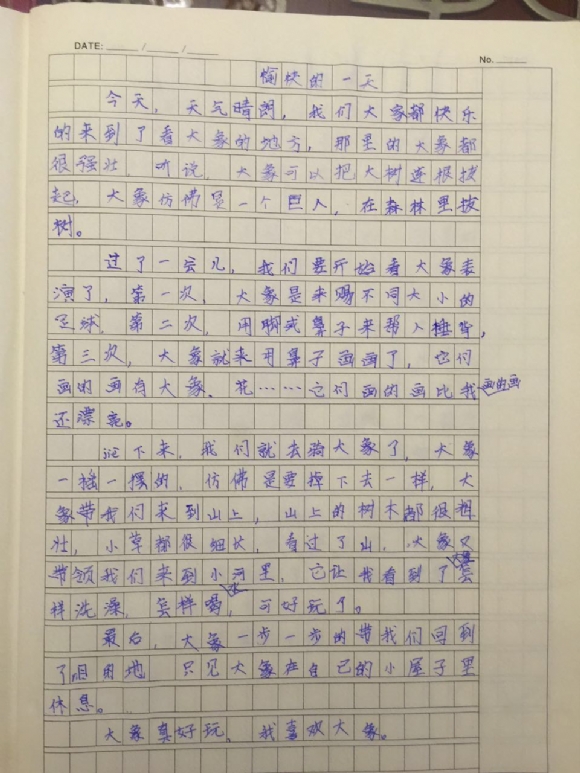 DATE: / /
No.
愉快的一天
今天，天气晴朗，我们大家都快乐
的来到了看大象的地方，那里的大象都
很强壮，听说，大象可以把大树连根拔
起，大象仿佛是一个巨人，在森林里拔
树。
过了一会儿，我们要开始看大象表
演了，第一次，大象是来踢不同大小的
足球，第二次，用脚或鼻子来帮人捶背，
第三次，大象就来用鼻子画画了，它们
画的画有大象、花……它们画的画比我画的画
还漂亮。
接下来，我们就去骑大象了，大象
一摇一摆的，仿佛是要掉下去一样，大
象带我们来到山上，山上的树木都很粗
壮，小草都很细长，看过了山，大象又
带领我们来到小河里，它让我看到了它是怎
样洗澡，怎样喝水，可好玩了。
最后，大象一步一步的带我们回到
了目的地 只见大象在自己的小屋子里
休息。
大象真好玩。我喜欢大象。